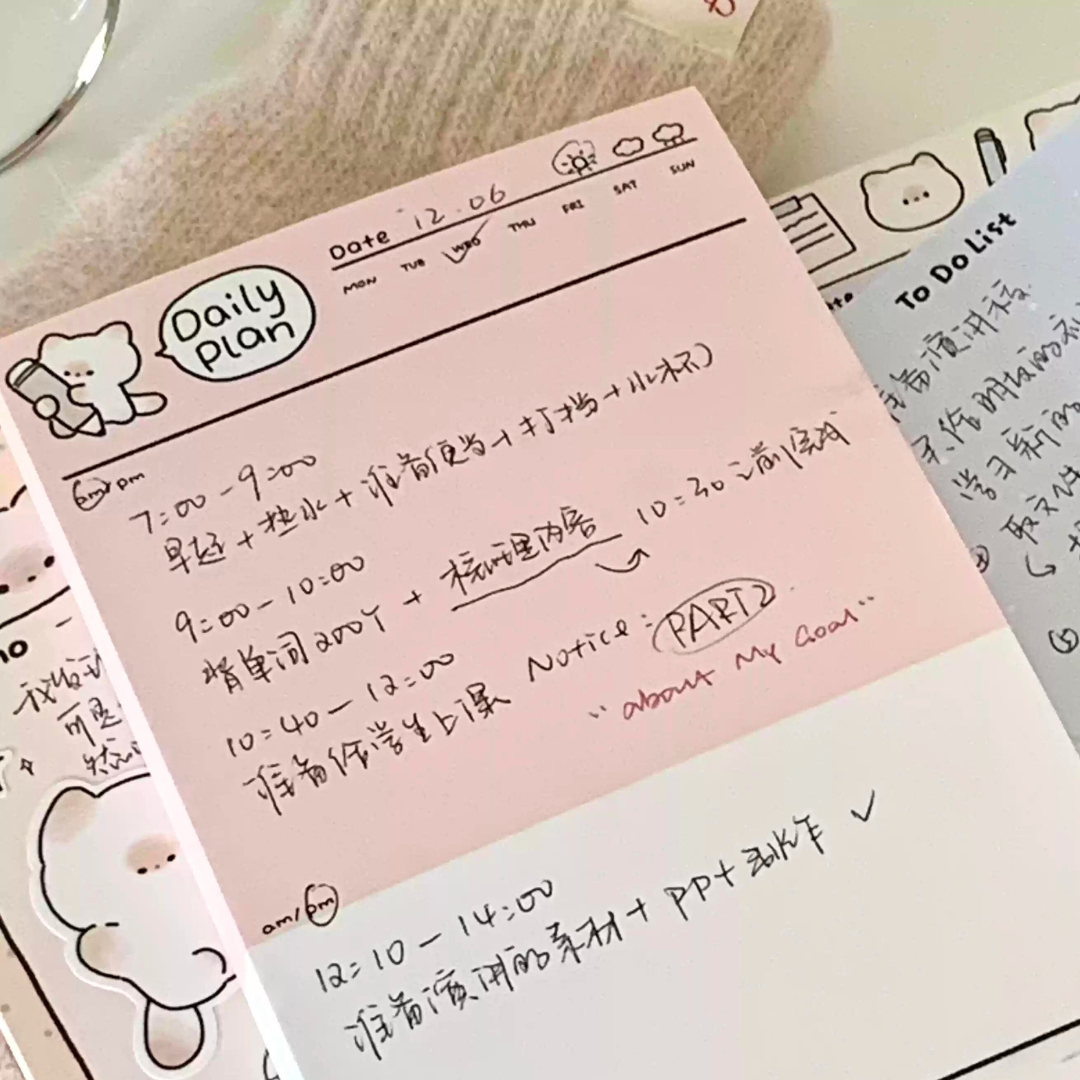 Date 12.06
MON TUE WED THU FRI SAT SUN
Daily
Plan
am/pm
7:00-9:00
早起+热水+准备便当+打挡+水杯)
9:00-10:00
背单词200个+梳理内容 10:30之前完成
10:40-12:00
准备给学生上课 Notice: PART2
"about My Goal"
am/pm
12:10-14:00
准备演讲的素材+PPt制作
To Do List
准备演讲稿
学习新的
取文件
可是